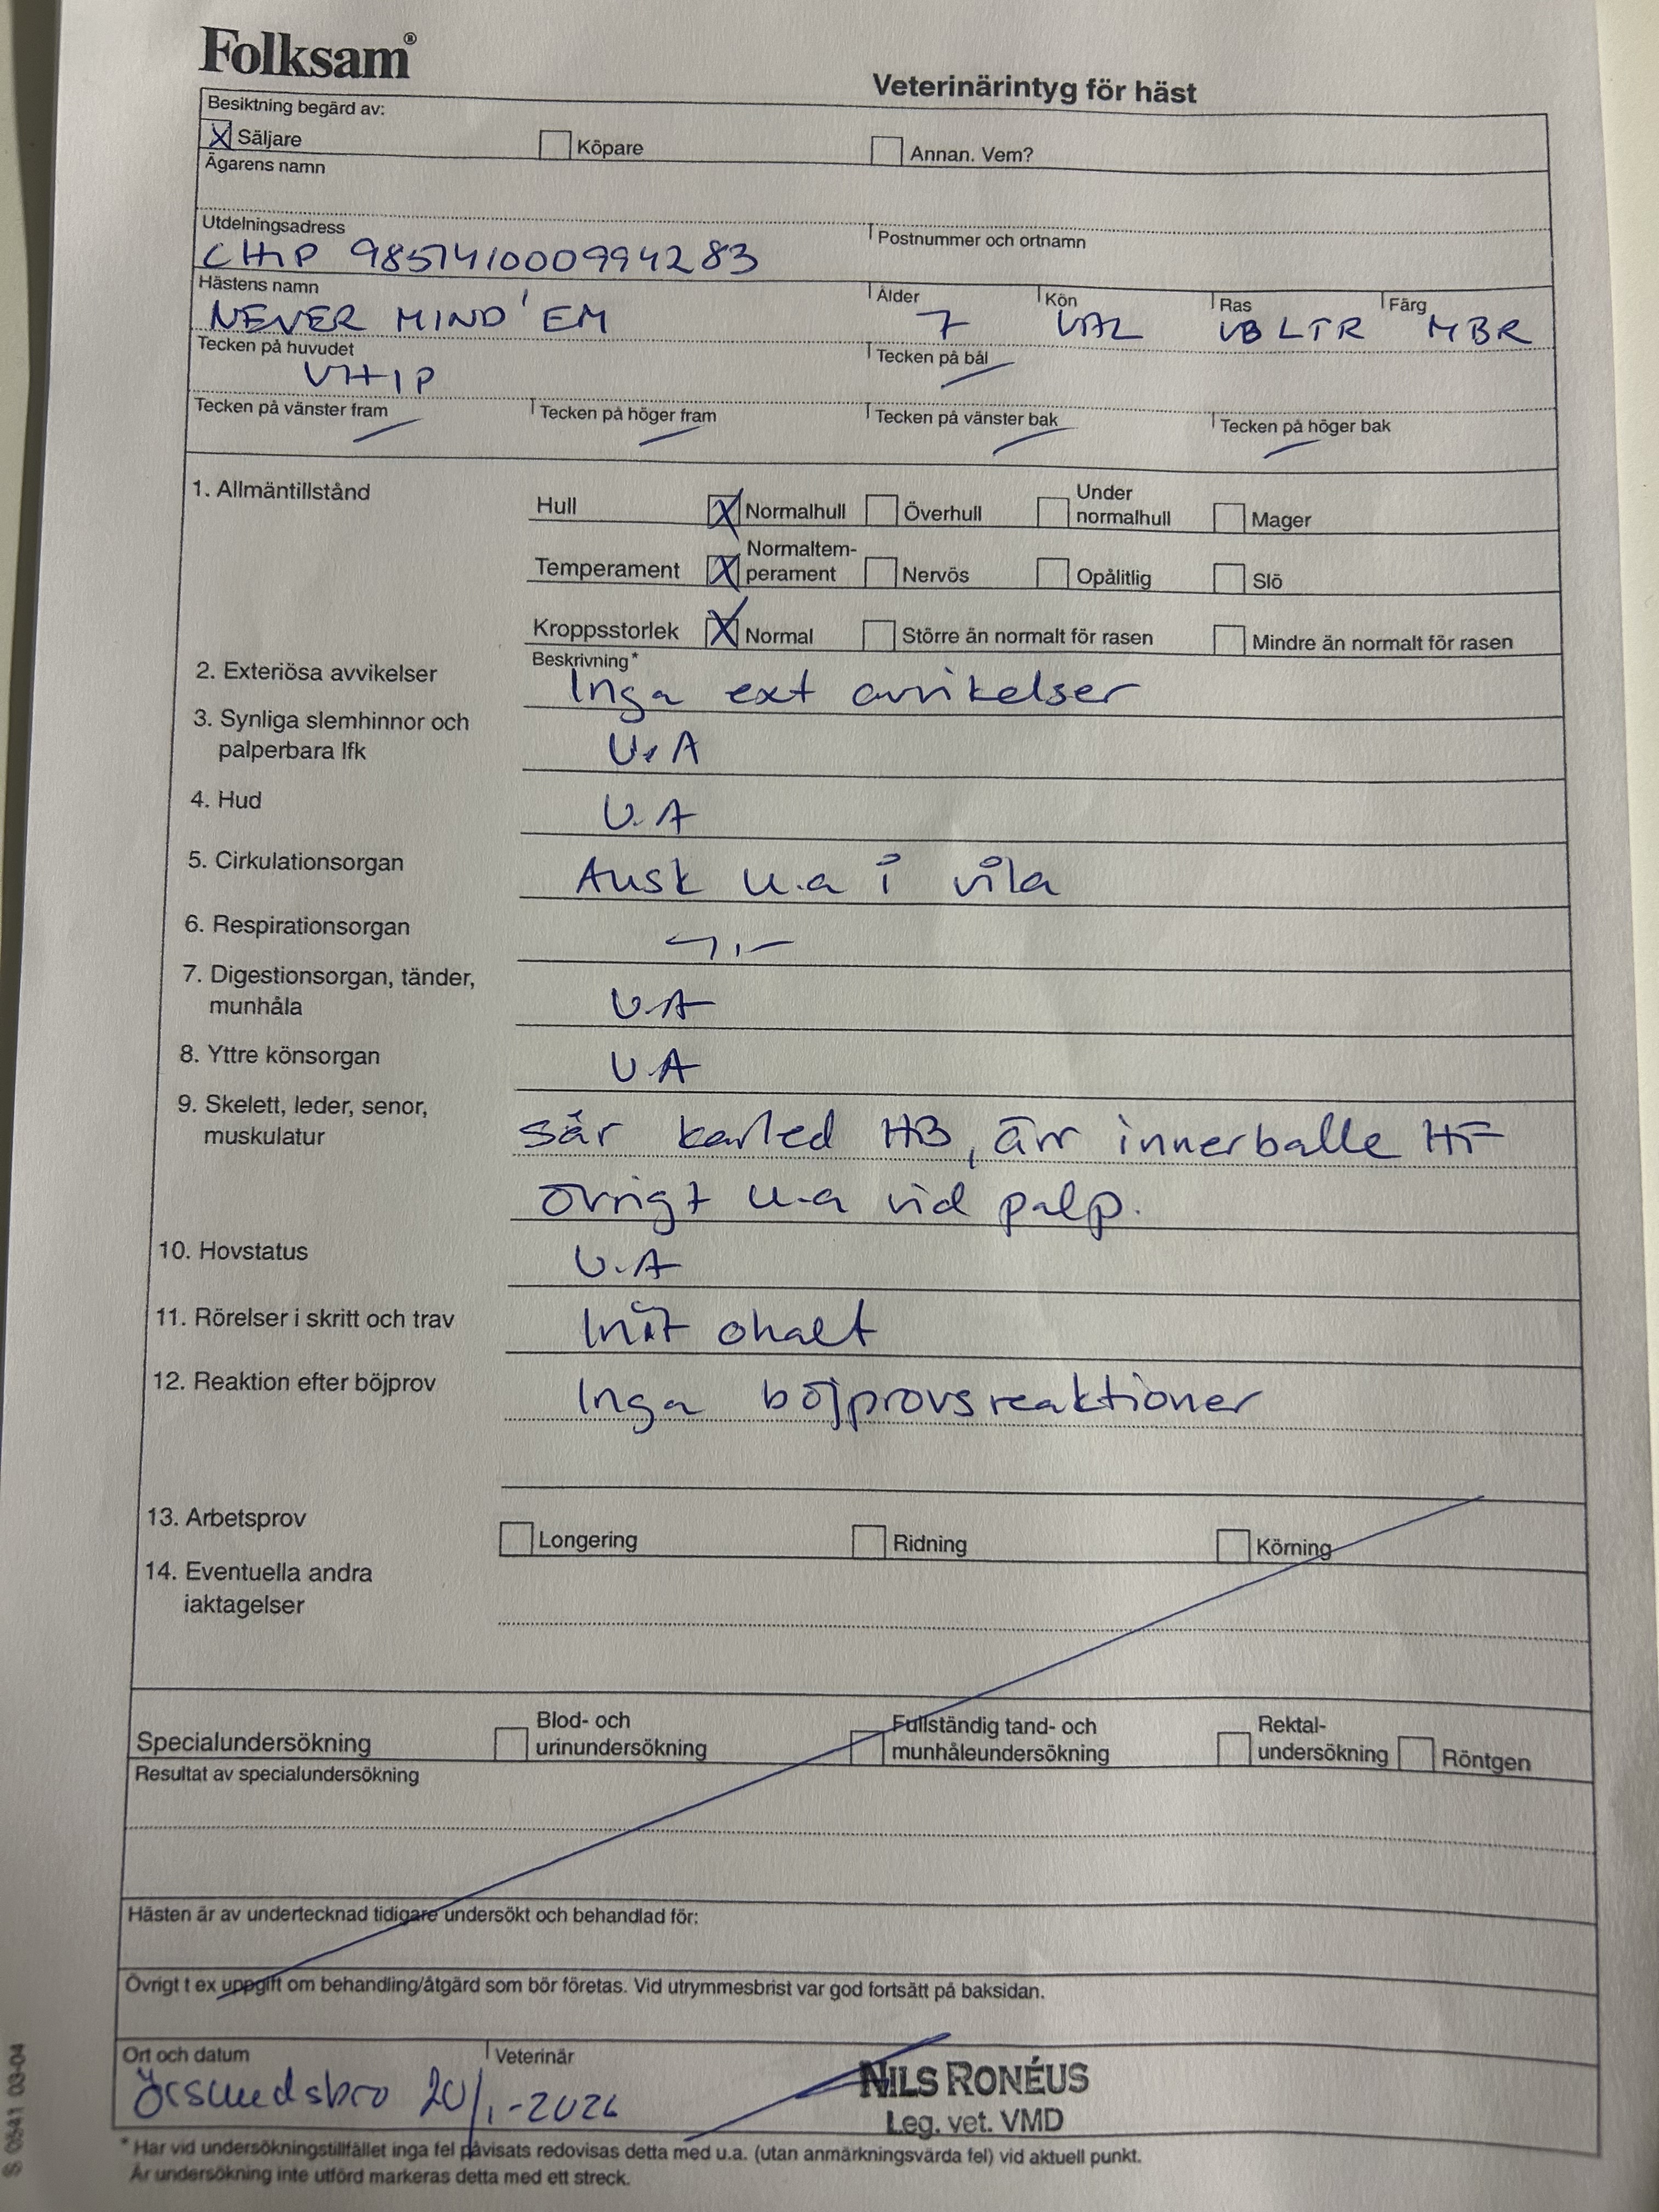 Folksam®
Veterinärintyg för häst
Besiktning begärd av:
X Säljare
Köpare
Annan. Vem?
Ägarens namn
Utdelningsadress
Postnummer och ortnamn
CHIP 985741000994283
Hästens namn
Ålder
Kön
Ras
Färg
NEVER MIND'EM 7 VAL VBLTR MBR
Tecken på huvudet
Tecken på bål
Tecken på vänster fram
Tecken på höger fram
Tecken på vänster bak
Tecken på höger bak
1. Allmäntillstånd
Hull X Normalhull Överhull Under normalhull Mager
Temperament X Normaltem-
perament Nervös Opålitlig Slö
Kroppsstorlek X Normal Större än normalt för rasen Mindre än normalt för rasen
Beskrivning*
2. Exteriösa avvikelser Inga ext avvikelser
3. Synliga slemhinnor och
palperbara lfk U.A
4. Hud U.A
5. Cirkulationsorgan Ausk u.a i vila
6. Respirationsorgan
7. Digestionsorgan, tänder,
munhåla U.A
8. Yttre könsorgan U.A
9. Skelett, leder, senor,
muskulatur
sår karled HB, ärr innerballe HF
övrigt u.a vid palp.
10. Hovstatus U.A
11. Rörelser i skritt och trav ohalt
12. Reaktion efter böjprov Inga böjprovsreaktioner
13. Arbetsprov Longering Ridning Körning
14. Eventuella andra
iaktagelser
Specialundersökning
Blod- och
urinundersökning
Fullständig tand- och
munhåleundersökning
Rektal-
undersökning
Röntgen
Resultat av specialundersökning
Hästen är av undertecknad tidigare undersökt och behandlad för:
Övrigt t ex uppgift om behandling/åtgärd som bör företas. Vid utrymmesbrist var god fortsätt på baksidan.
Ort och datum
Veterinär
Örsundsbro 20/1-2026
NILS RONÉUS
Leg. vet. VMD
* Har vid undersökningstillfället inga fel påvisats redovisas detta med u.a. (utan anmärkningsvärda fel) vid aktuell punkt.
Är undersökning inte utförd markeras detta med ett streck.
S 0841 03-04